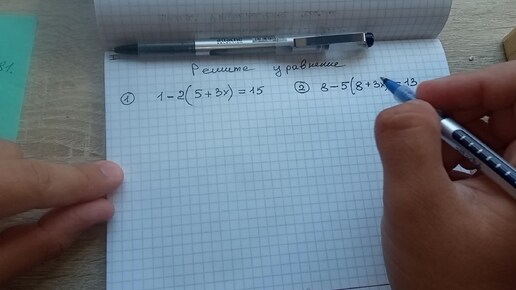 Решите уравнение
① 1 - 2(5 + 3x) = 15 ② 8 - 5(8 + 3x) = 13